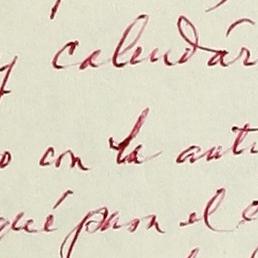 y calendár
o con la anti
qué pasa el